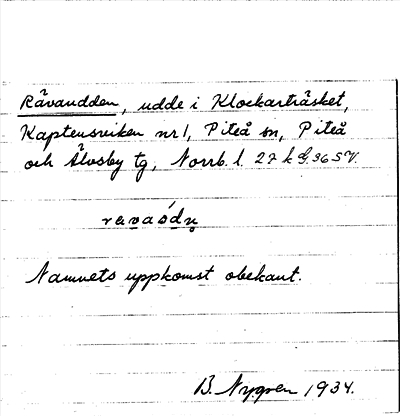 Rävaudden, udde i Klockarträsket,
Kaptensviken nr 1, Piteå sn, Piteå
och Älvsby tg, Norrb. l. 27 k G. 36 S V.
ravaódṇ
Namnets uppkomst obekant.
B. Nygren 1934.